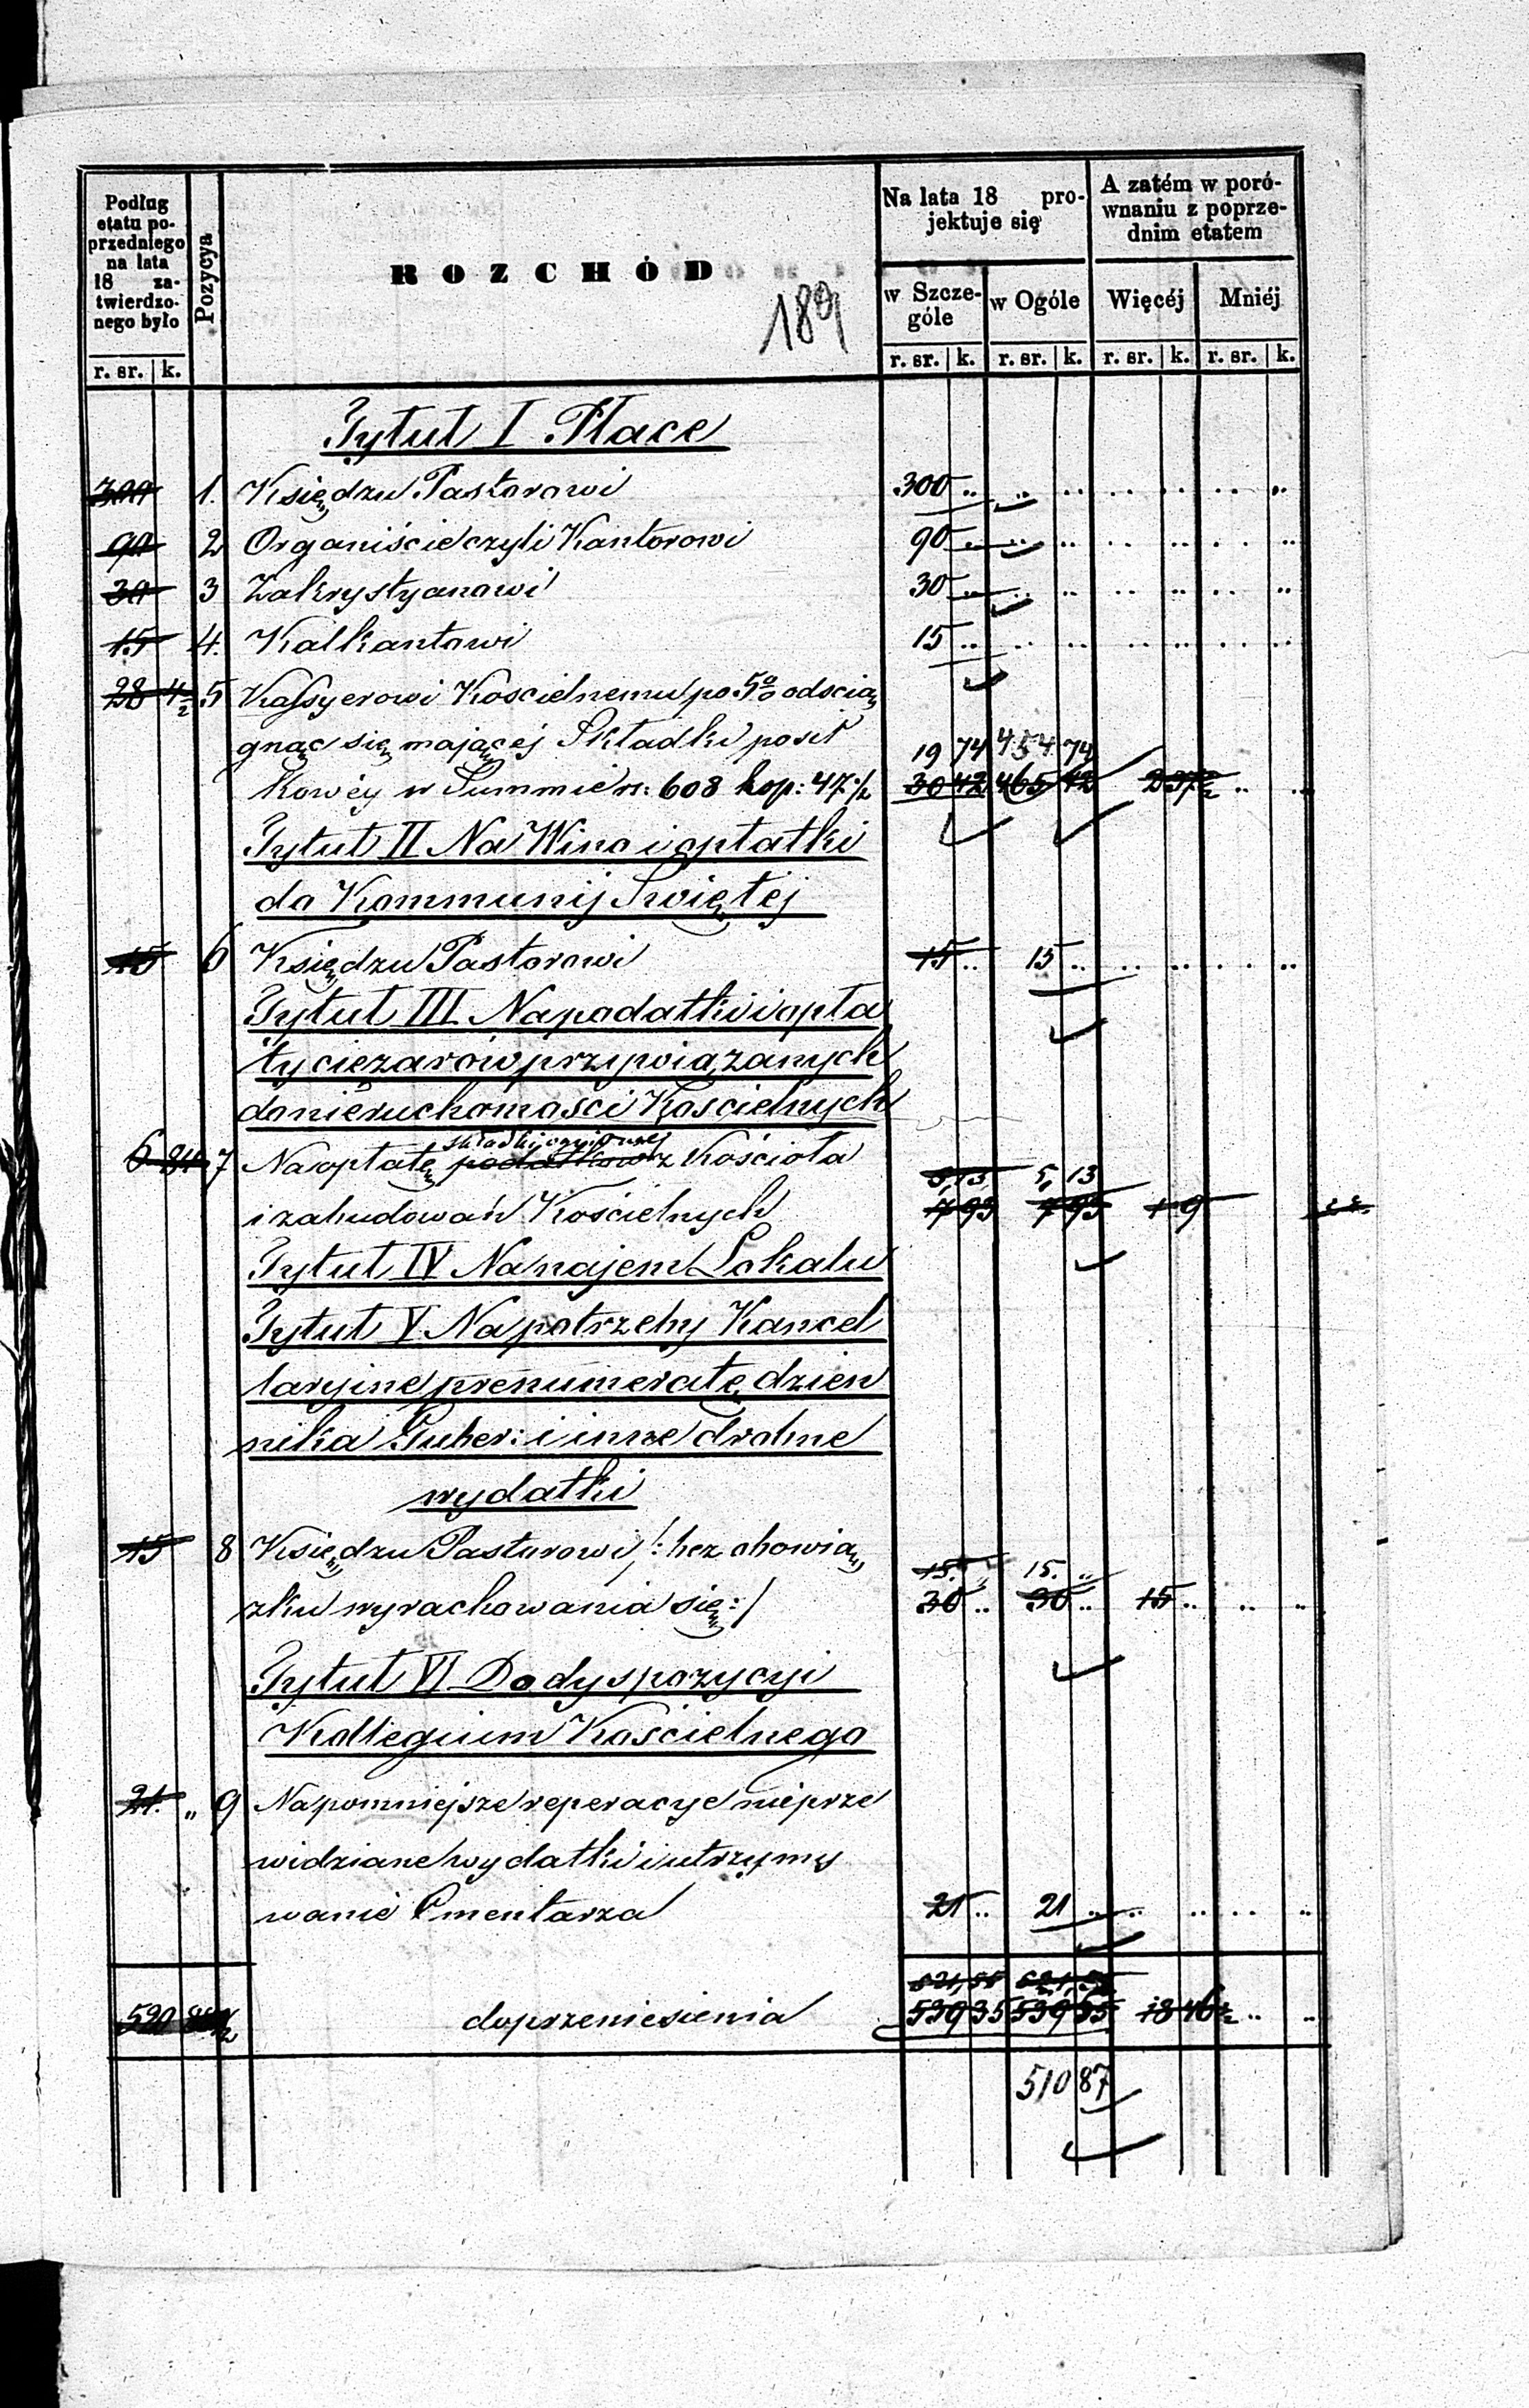 Podług etatu poprzedniego na lata 18 zatwierdzonego było
Pozycya
ROZCHÓD
189
Na lata 18 projektuje się
A zatém w porównaniu z poprzednim etatem
w Szczególe
w Ogóle
Więcéj
Mniéj
r. sr. k. r. sr. k. r. sr. k. r. sr. k. r. sr. k.
Tytuł I Płace
300 1. Księdzu Pastorowi 300 .. .. .. .. .. .. ..
90 2 Organiście czyli Kantorowi 90 .. .. .. .. .. . . ..
30 3 Zakrystyanowi 30 .. .. .. .. .. .. ..
15 4. Kalkantowi 15 .. .. .. .. .. .. ..
28 4½ 5 Kassyerowi Kościelnemu po 5% od scią
gnąć się mającej Składki posił 19 74 454 74
kowéj w Summie rs: 608 kop: 47½ 30 42 465 42 2 37½ .. ..
Tytuł II Na Wino i opłatki
do Kommunij Swiętéj
15 6 Księdzu Pastorowi 15 .. 15 .. .. .. .. ..
Tytuł III Na podatki i opła
ty ciezarów przywiązanych
do nieruchomosci Koscielnych
składki ogniowej
6 84 7 Na opłatę podatków z Kościoła 5,13, 5, 13
i zabudowań Kościelnych 7 93 7 93 1 9
Tytuł IV Na najem Lokalu
Tytuł V Na potrzeby Kancel
laryjne prenumeratę dzien
nika Guber: i inne drobne
wydatki
15 8 Księdzu Pastorowi /: bez obowią 15. " 15. "
zku wyrachowania się :/ 30 .. 30 .. 15 .. .. ..
Tytuł VI Do dyspozycyi
Kollegium Kościelnego
21. " 9 Na pomniejsze reperacye nieprze
widziane wydatki i utrzymy
wanie Cmentarza 21 .. 21 .. .. .. .. ..
520 do przeniesienia 539 35 539 35 18 46½ .. ..
510 87